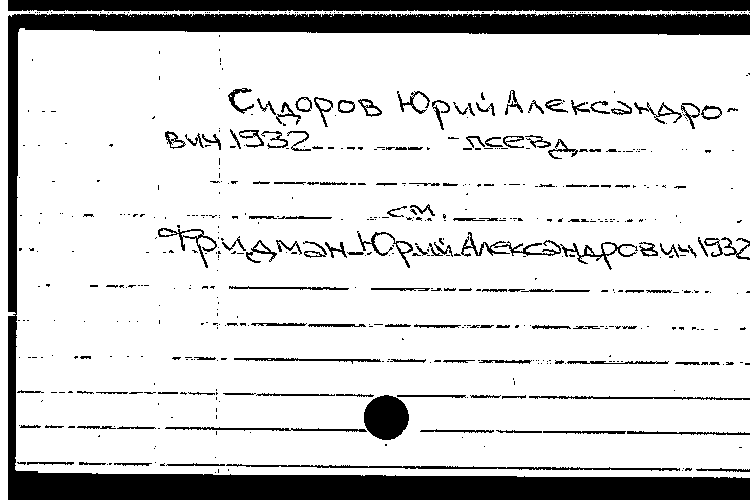 Сидоров Юрий Александро-
вич 1932 - псевд
см.
Фридман Юрий Александрович 1932